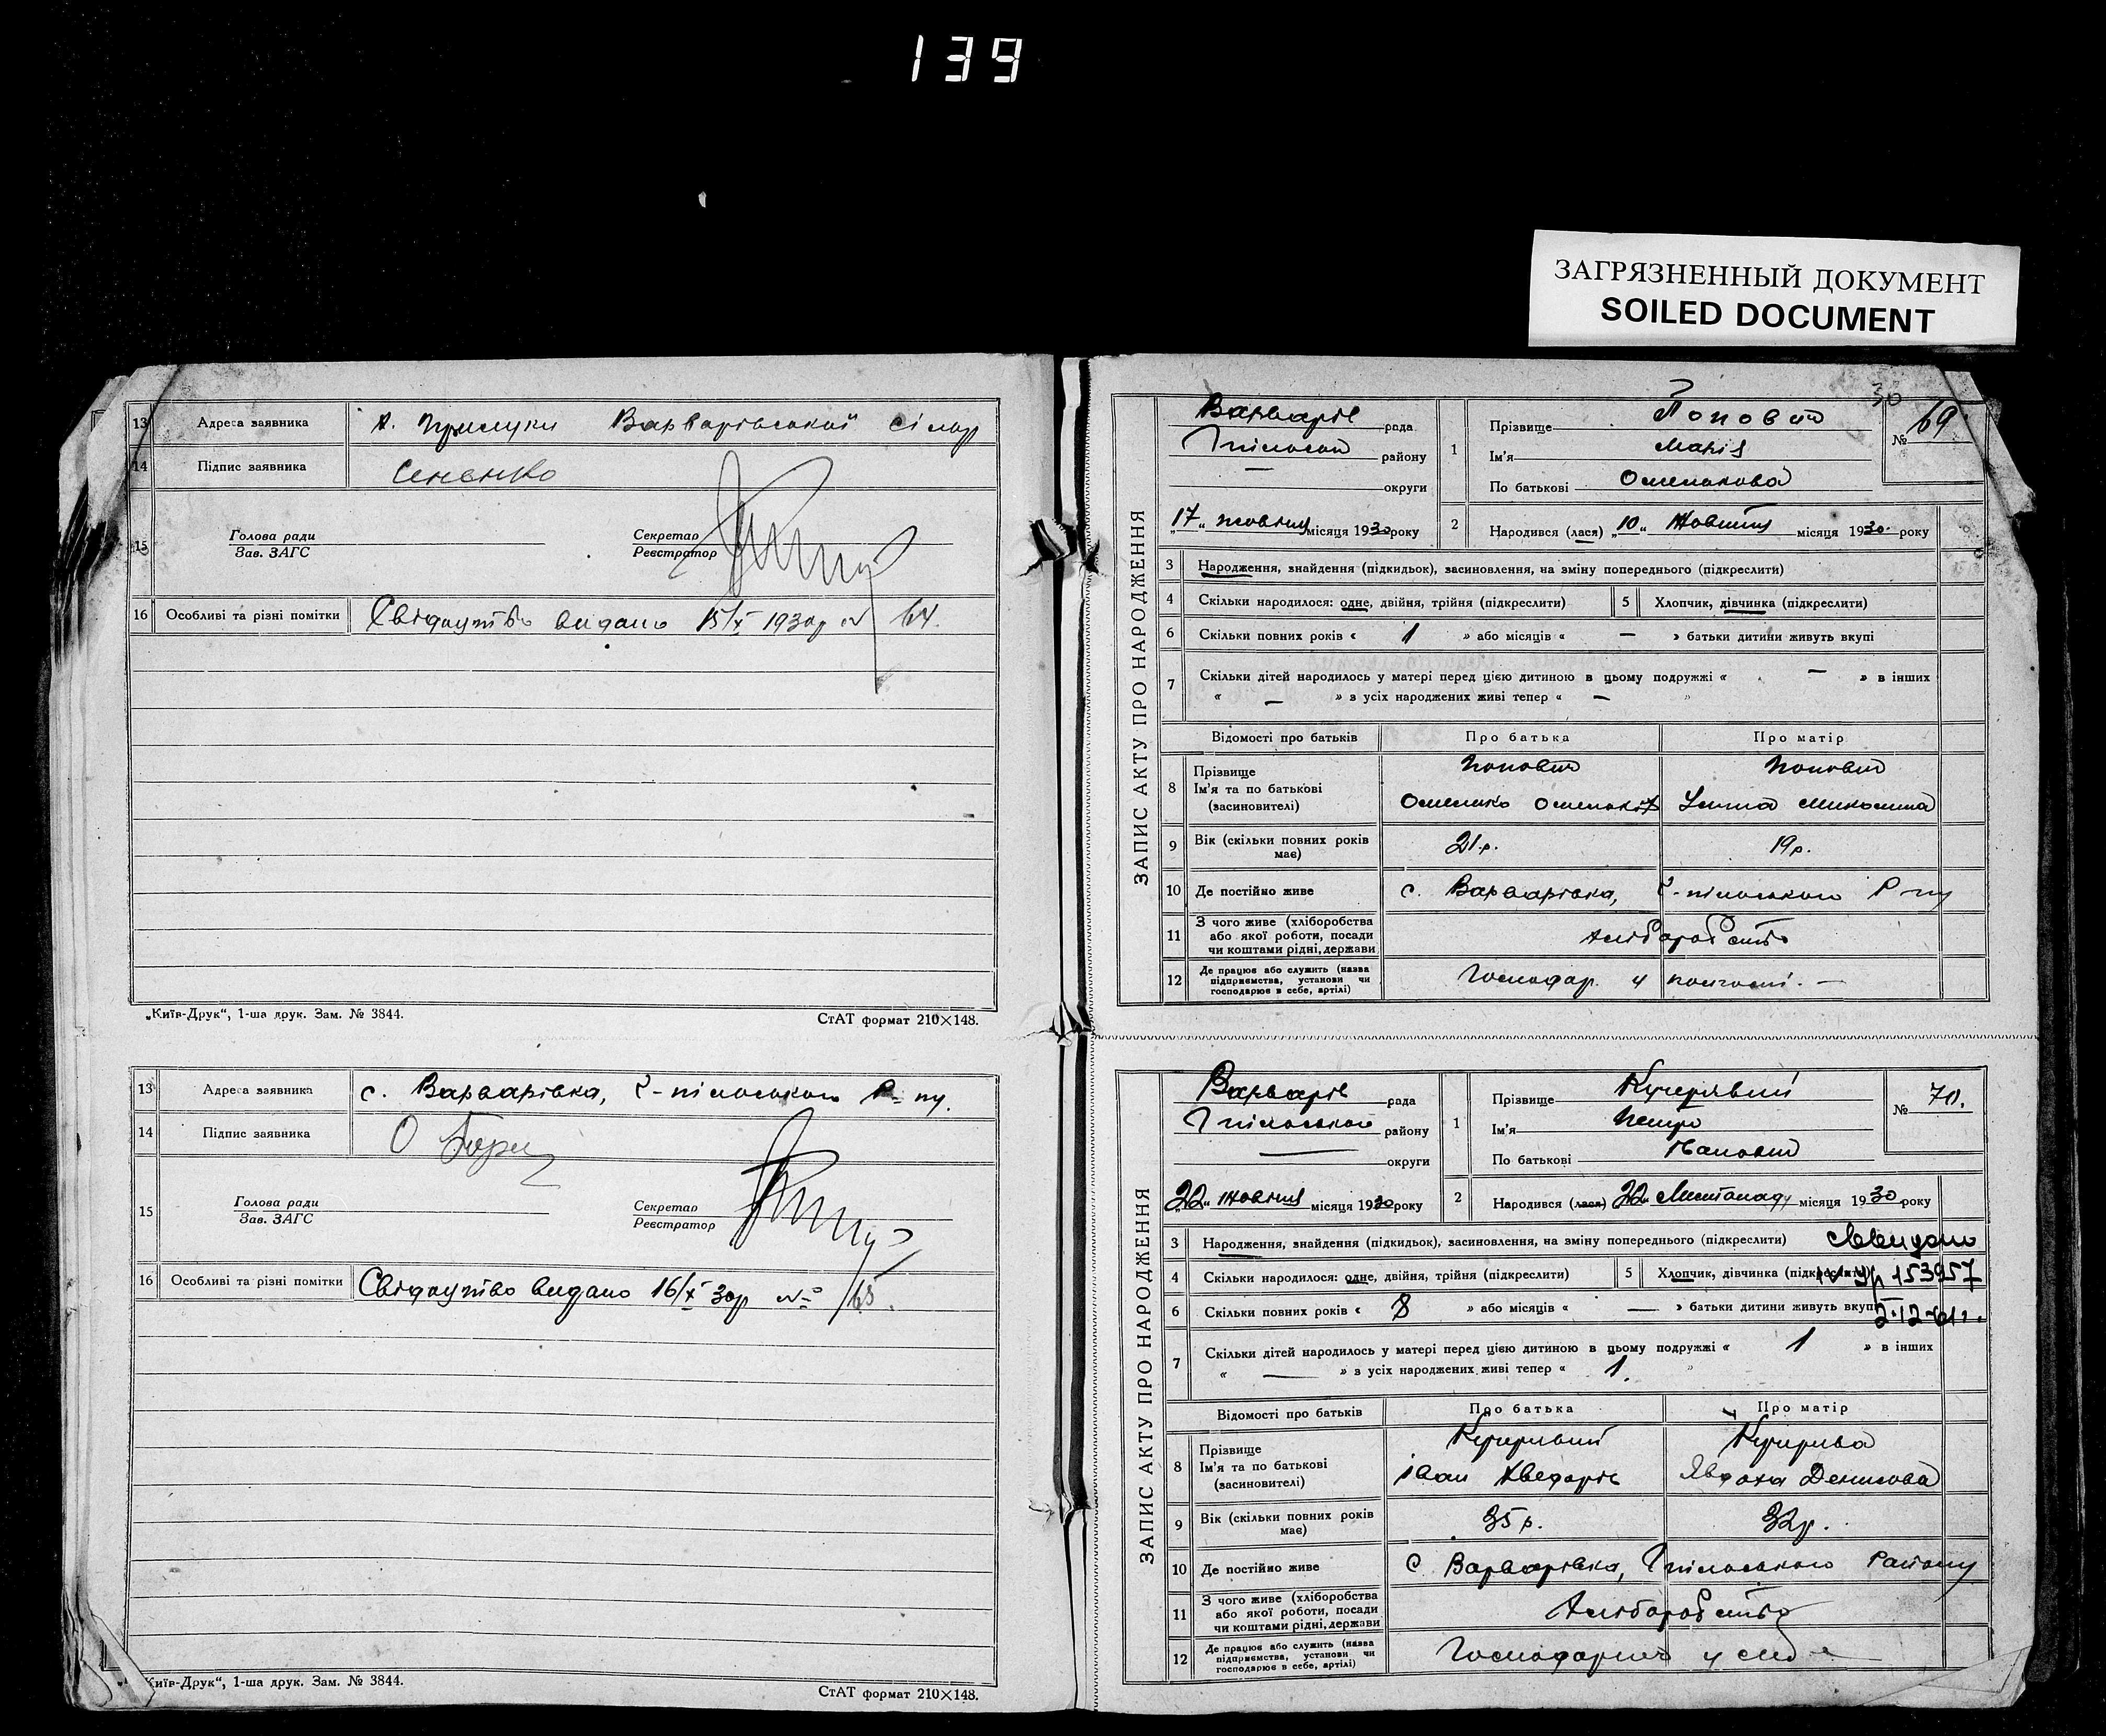 139
ЗАГРЯЗНЕННЫЙ ДОКУМЕНТ
SOILED DOCUMENT
13 Адреса заявника Х. Прилуки Варварівської сільр
14 Підпис заявника Сененко
15 Голова ради
Зав. ЗАГС
Секретар
Реєстратор
16 Особливі та різні помітки Свідоцтво видано 15/X 1930р № 64.
„Київ-Друк“, 1-ша друк. Зам. № 3844. СтАТ формат 210×148.
13 Адреса заявника с. Варварівка,
14 Підпис заявника О
15 Голова ради
Зав. ЗАГС
Секретар
Реєстратор
16 Особливі та різні помітки Свідоцтво видано 16/X 30р № 65.
Київ-Друк“, 1-ша друк. Зам. № 3844. СтАТ формат 210×148.
ЗАПИС АКТУ ПРО НАРОДЖЕННЯ
30
Варварів рада
району
округи
„17“ жовтня місяця 1930 року
1 Прізвище Попович
Ім'я Марія
По батькові Омелькова
№ 69
2 Народився (лася) „10“ Жовтня місяця 1930 року
3 Народження, знайдення (підкидьок), засиновлення, на зміну попереднього (підкреслити)
4 Скільки народилося: одне, двійня, трійня (підкреслити) 5 Хлопчик, дівчинка (підкреслити)
6 Скільки повних років « 1 » або місяців « — » батьки дитини живуть вкупі
7 Скільки дітей народилось у матері перед цією дитиною в цьому подружжі « — » в інших
« — » з усіх народжених живі тепер « — »
Відомості про батьків Про батька Про матір
8 Прізвище Попович Попович
Ім'я та по батькові
(засиновителі) Омелько Омельків Миколина
9 Вік (скільки повних років має) 21 р. 19 р.
10 Де постійно живе с. Варварівка,
11 З чого живе (хліборобства або якої роботи, посади чи коштами рідні, держави Хліборобство
12 Де працює або служить (назва підприємства, установи чи господарює в себе, артілі) Господар. у
ЗАПИС АКТУ ПРО НАРОДЖЕННЯ
Варварів рада
району
округи
„22“ Жовтня місяця 1930 року
1 Прізвище Кучерявий
Ім'я Петро
По батькові
№ 70.
2 Народився (лася) „22“ Листопаду місяця 1930 року
3 Народження, знайдення (підкидьок), засиновлення, на зміну попереднього (підкреслити)
4 Скільки народилося: одне, двійня, трійня (підкреслити) 5 Хлопчик, дівчинка (підкреслити) 153957
6 Скільки повних років « 8 » або місяців « — » батьки дитини живуть вкупі 2.12-61г.
7 Скільки дітей народилось у матері перед цією дитиною в цьому подружжі « 1 » в інших
« — » з усіх народжених живі тепер « 1. »
Відомості про батьків Про батька Про матір
8 Прізвище Кучерявий Кучерява
Ім'я та по батькові
(засиновителі) Іван Хведорів Явдоха Денисова
9 Вік (скільки повних років має) 35 р. 32 р.
10 Де постійно живе с Варварівка, Району
11 З чого живе (хліборобства або якої роботи, посади чи коштами рідні, держави Хліборобство
12 Де працює або служить (назва підприємства, установи чи господарює в себе, артілі) у себе